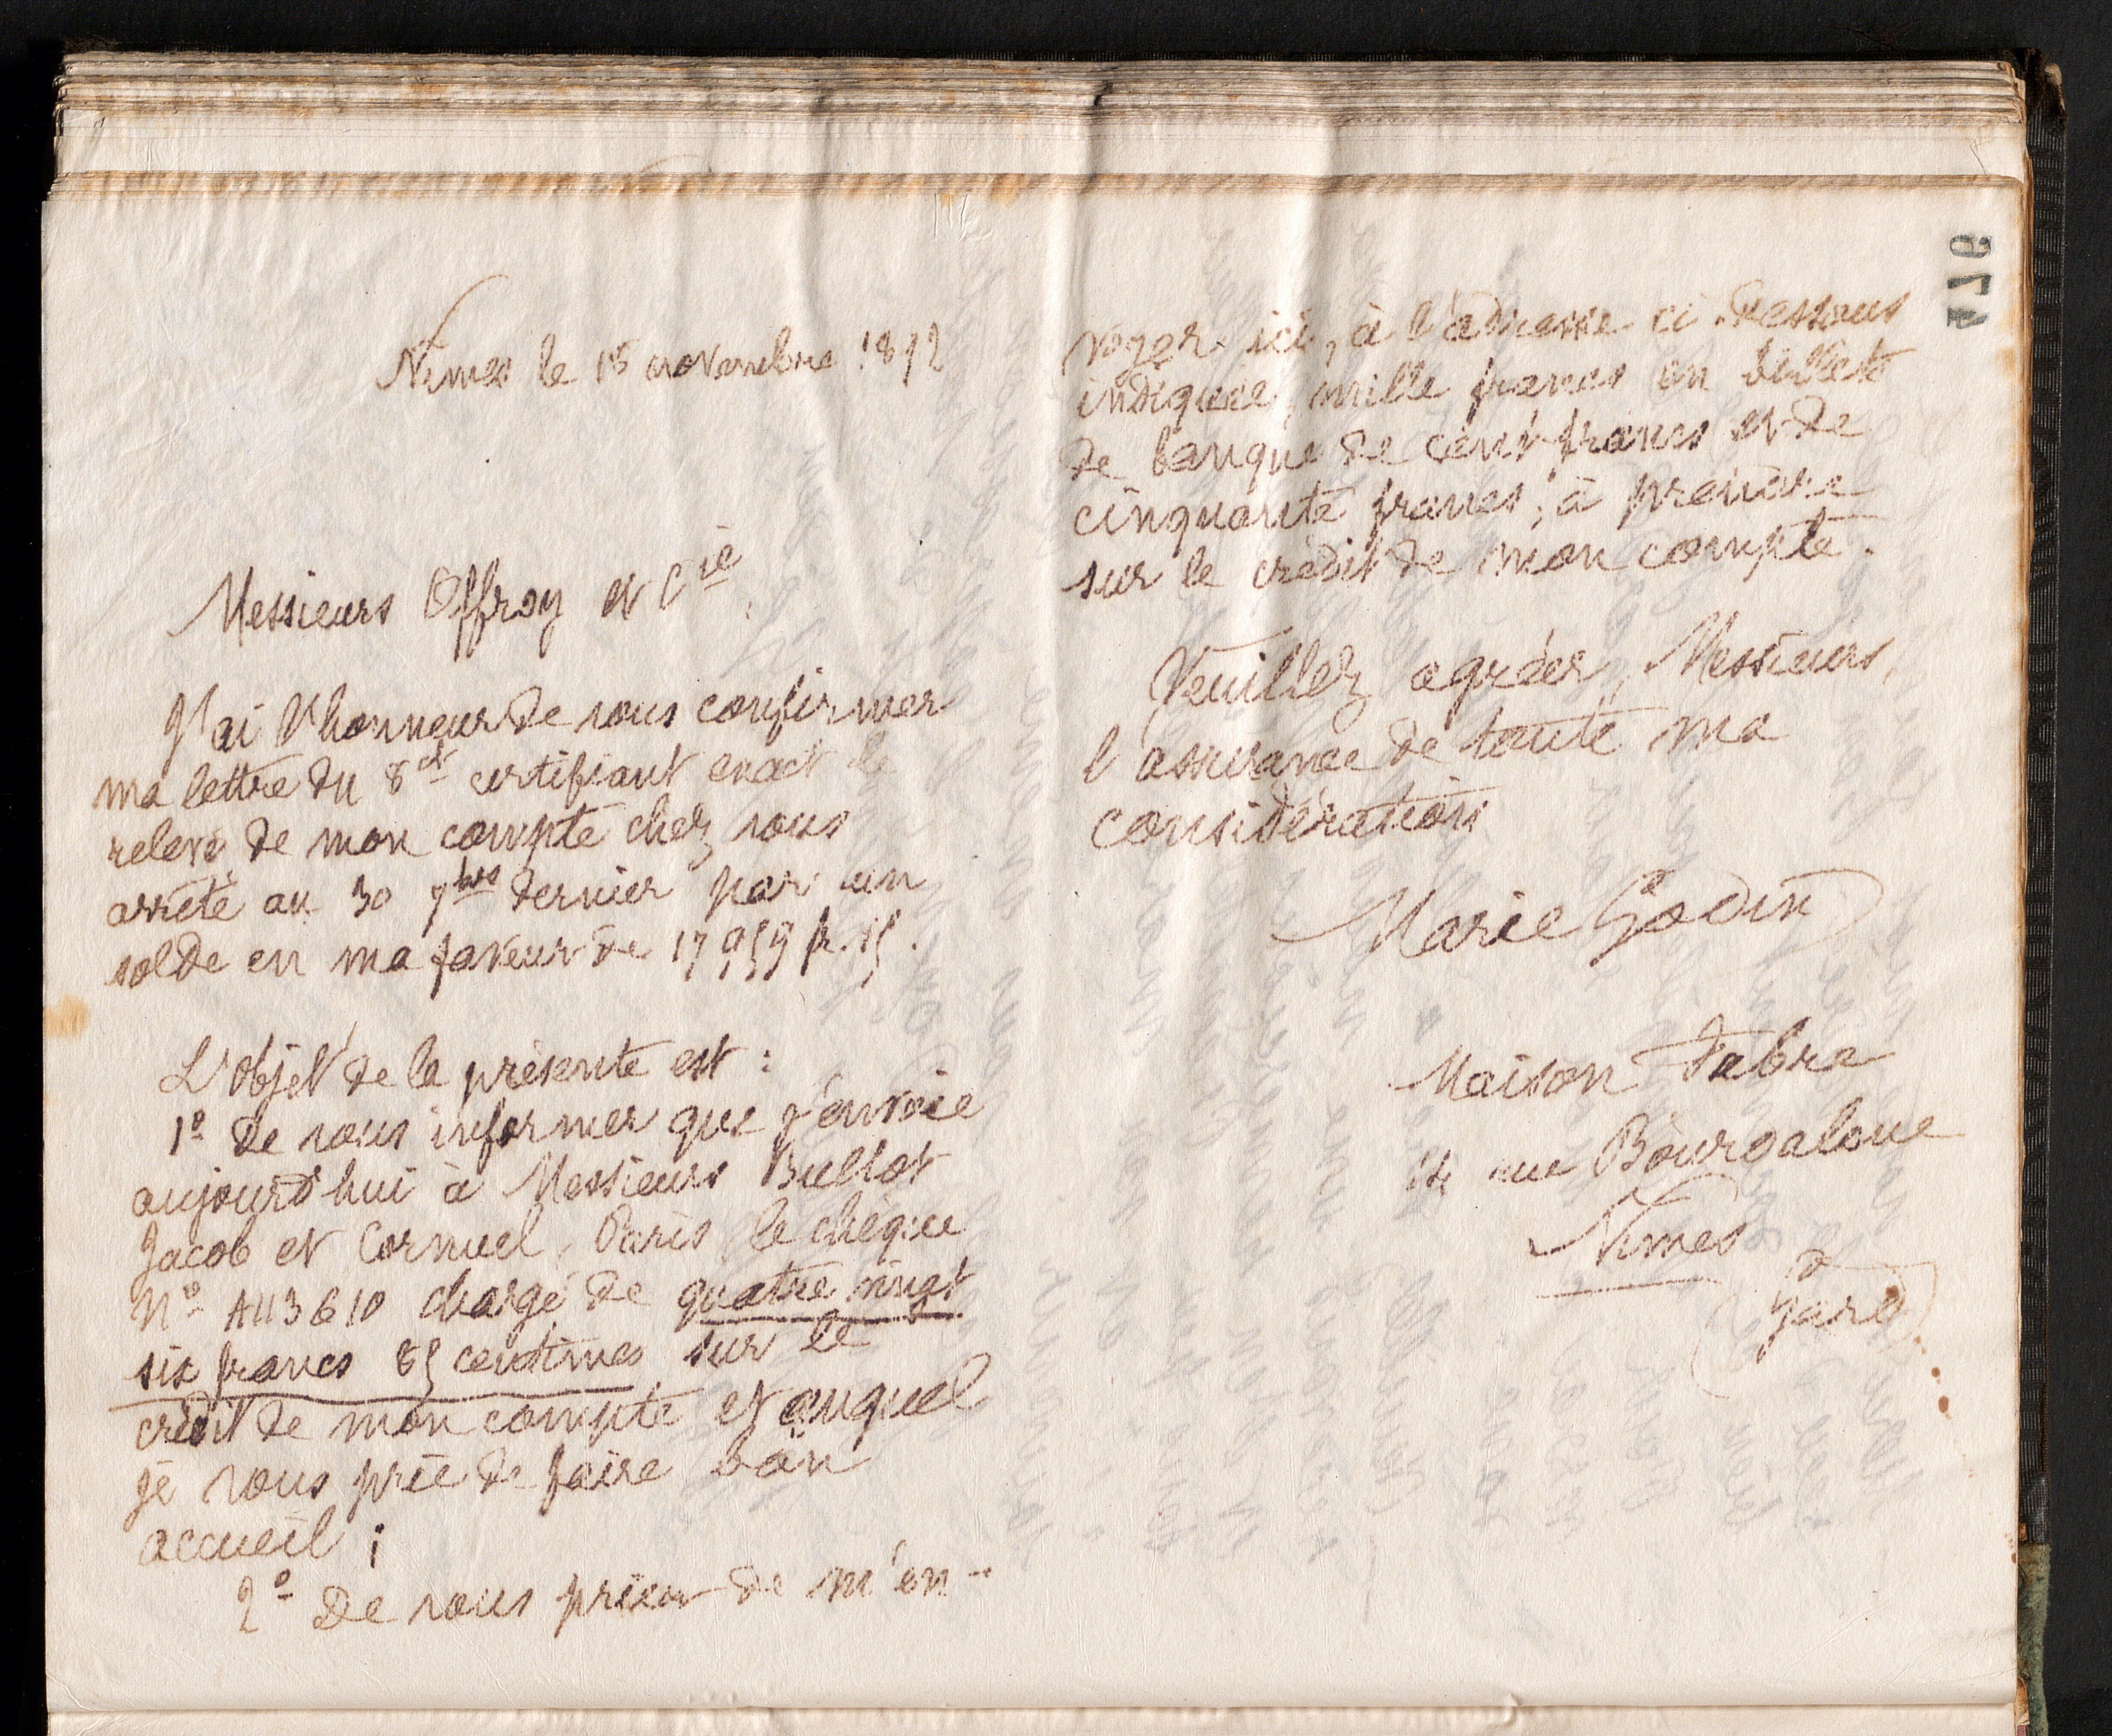 Nimes le 15 novembre 1892
Messieurs Offroy et Cie
J'ai l'honneur de vous confirmer
ma lettre du 8 ct certifiant exact le
relevé de mon compte chez vous
arrêté au 30 7bre dernier par un
solde en ma faveur de 17 959 fr. 15.
L'objet de la présente est :
1º de vous informer que j'envoie
aujourd'hui à Messieurs Bullot
Jacob et Cornuel, Paris, le chèque
Nº A113610 chargé de quatre vingt
six francs 85 centimes sur le
crédit de mon compte et auquel
je vous prie de faire bon
accueil ;
2º De vous prier de m'en-
voyer ici, à l'adresse ci-dessous
indiquée, mille francs en billets
de banque de cent francs et de
cinquante francs, à prendre
sur le crédit de mon compte.
Veuillez agréer, Messieurs,
l'assurance de toute ma
considération
Marie Godin
Maison Fabre
14 rue Bourdaloue
Nimes
(Gard)
677